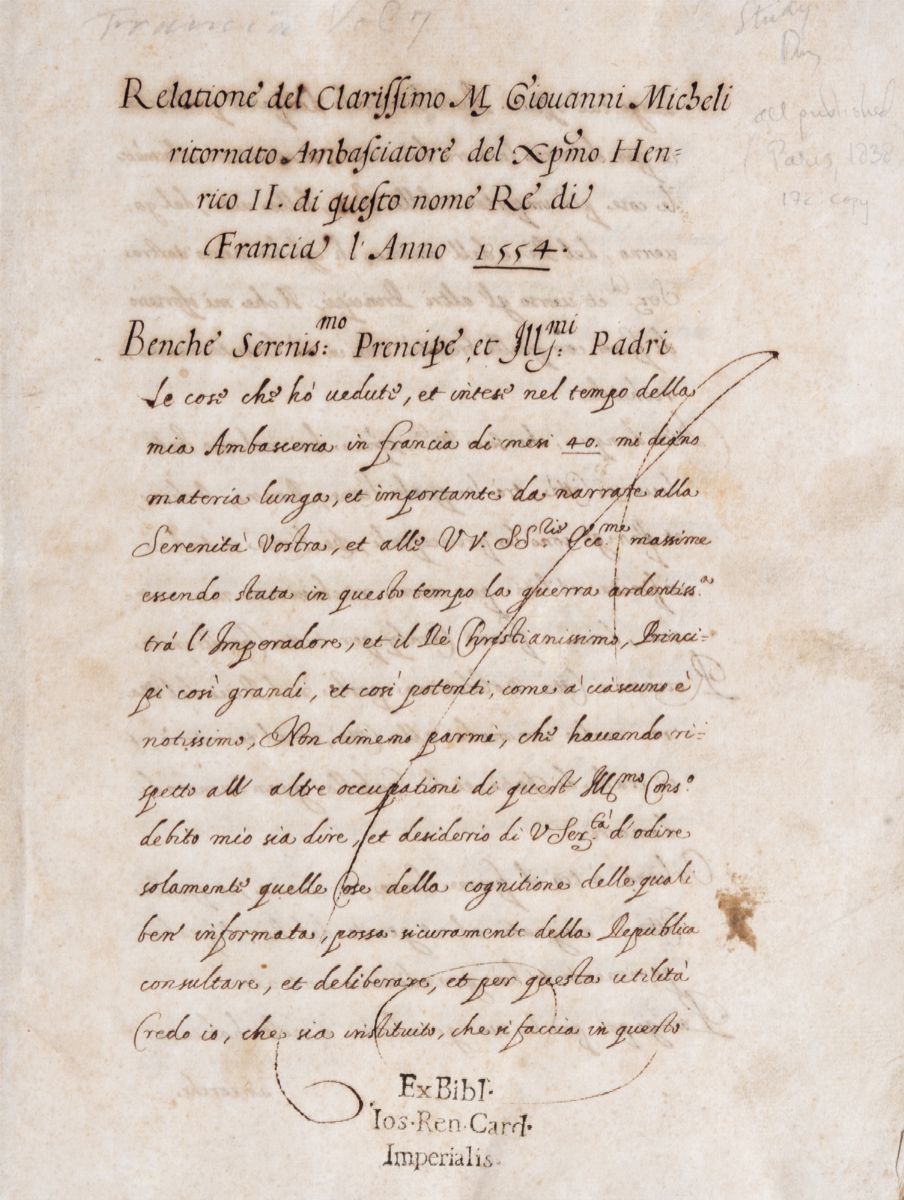 Francia Vol 7
Study
not published
Paris, 1838
17c copy
Relatione del Clarissimo M. Giovanni Micheli
ritornato Ambasciatore del Xpmo Hen=
rico II. di questo nome Re di
Francia l'Anno 1554.
Benche Serenis:mo Prencipe et Ill:mi Padri
Le cose che hò vedute, et intese nel tempo della
mia Ambasceria in francia di mesi 40. mi diano
materia lunga, et importante da narrare alla
Serenità Vostra, et alle VV. SS.rie Ecc.me massime
essendo stata in questo tempo la guerra ardentiss.a
trà l'Imperadore, et il Rè Christianissimo, Princi=
pi così grandi, et così potenti, come à ciascuno è
notissimo, Non dimeno parmi, che havendo ri=
spetto all' altre occupationi di quest' Ill.mo Cons.o
debito mio sia dire, et desiderio di V Ser.tà d'odire
solamente quelle Cose della cognitione delle quali
ben' informata, possa sicuramente della Republica
consultare, et deliberare, et per questa utilità
Credo io, che sia instituito, che si faccia in questo
Ex Bibl.
Ios. Ren. Card.
Imperialis.